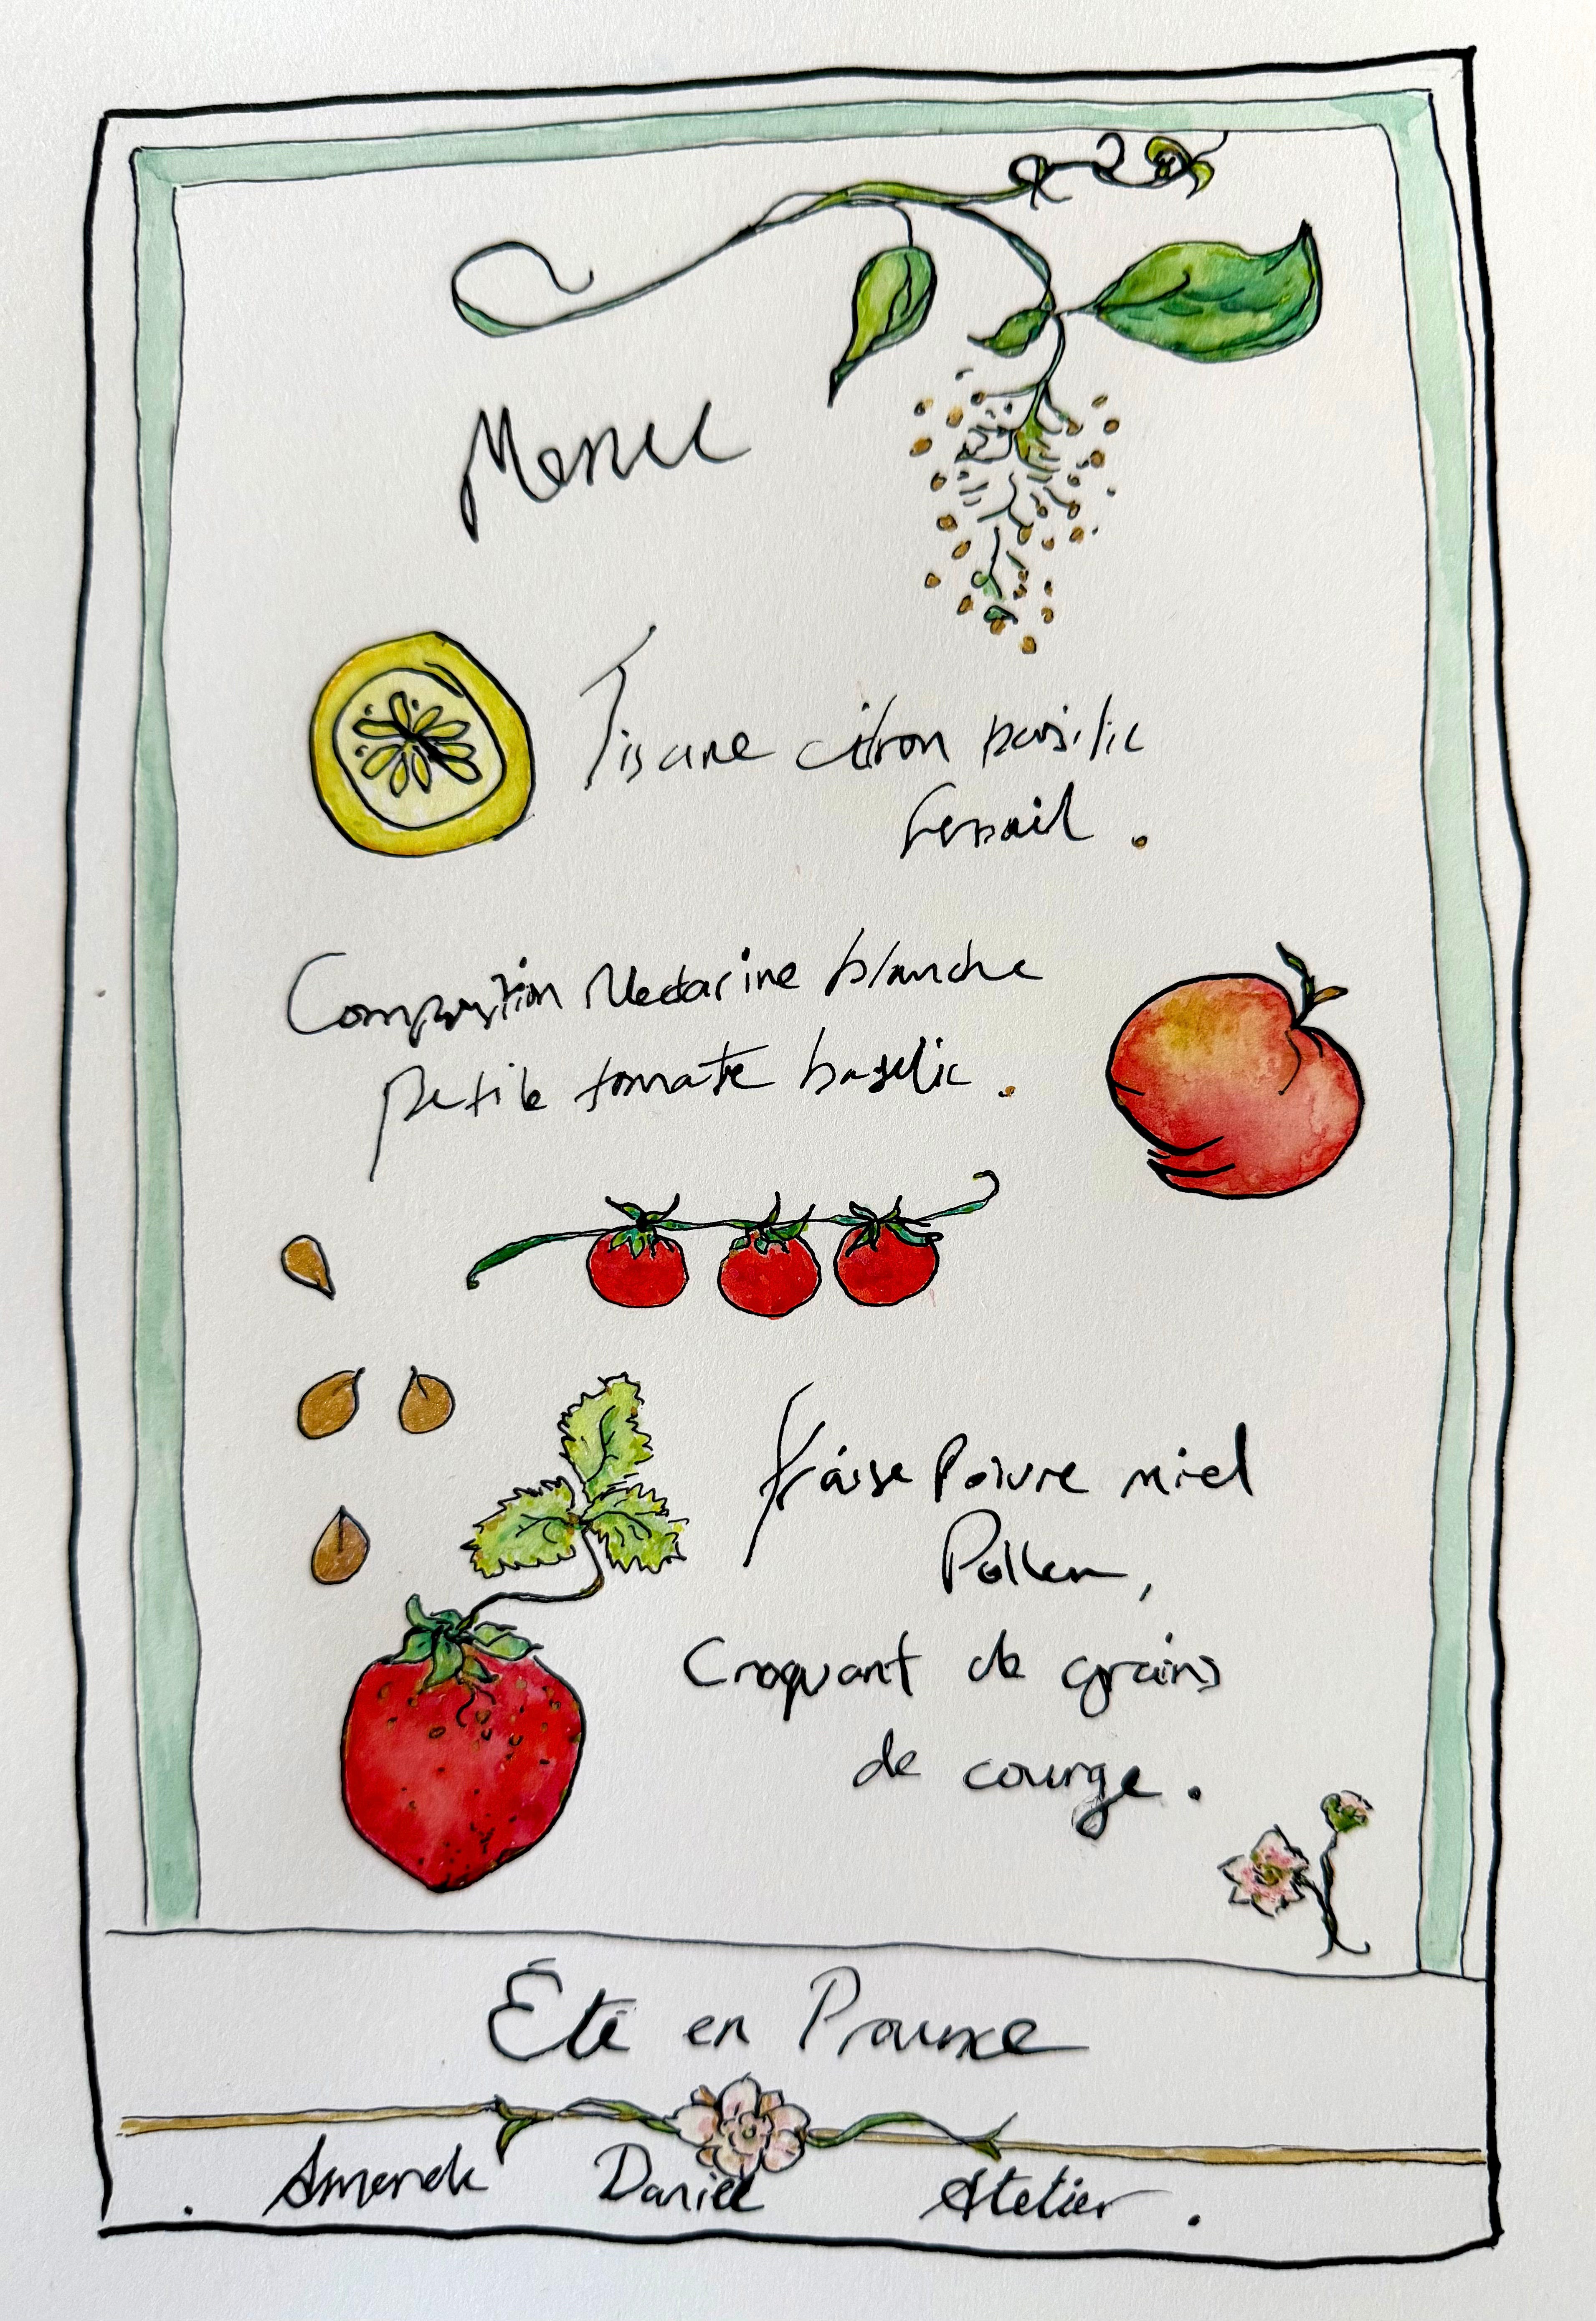 Menu
Tisane citron basilic
Composition Nectarine blanche
petite tomate basilic .
fraise Poivre miel
Pollen,
Croquant de grains
de courge .
Été en Provence
. Amande Daniel Atelier .